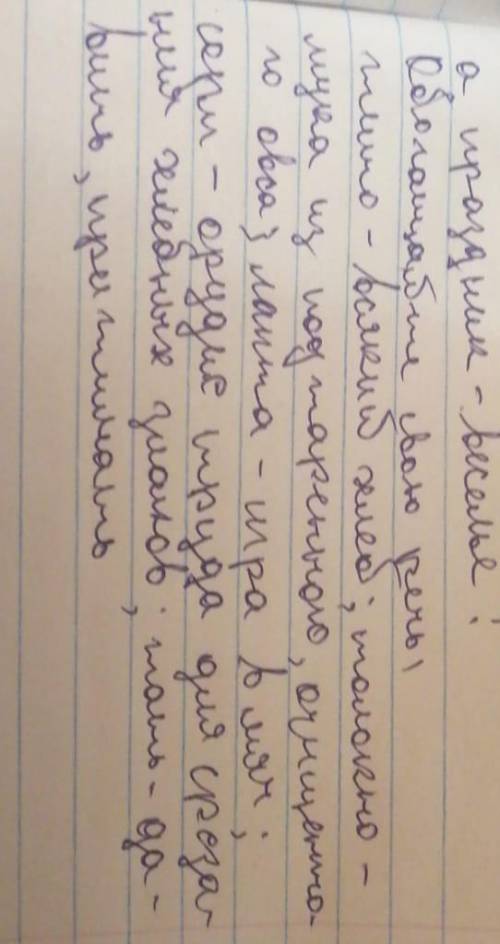 а праздник - веселье!
Обогащайте свою речь!
жито - всякий хлеб; толокно -
мука из поджаренного, очищенно-
го овса; лапта - игра в мяч;
серп - орудие труда для среза-
ния хлебных злаков; жать - да-
вить, прижимать